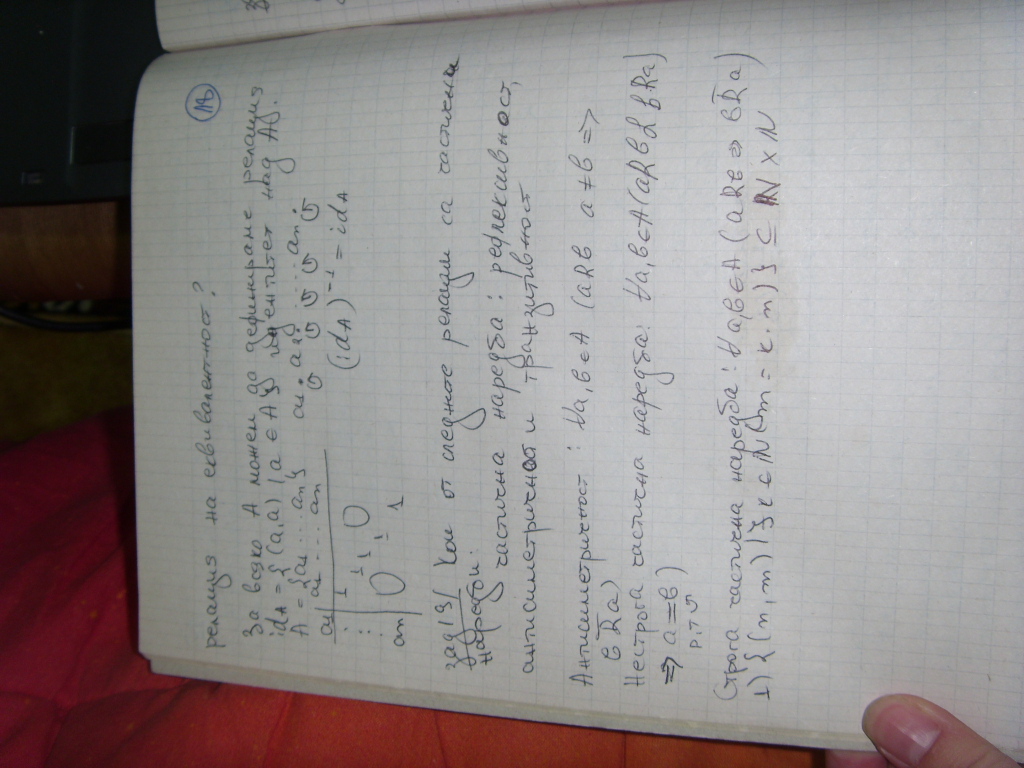 релация на еквивалентност?
За всяко A можем да дефинираме релация
idA = {(a,a) | a ∈ A} идентитет над A.
A = {a1 .... an}
a1 a2 .... an
(idA)⁻¹ = idA
a1 ..... an
a1 | 1
⋮ 1 1 0
an | 0 1 1
зад 13/ Кои от следните релации са частични
наредби:
частична наредба: рефлексивност,
антисиметричност и транзитивност
Антисиметричност: ∀a,b ∈ A (aRb a≠b =>
b R̅ a)
Нестрога частична наредба: ∀a,b∈A (aRb & bRa)
=> a=b)
р.т.
Строга частична наредба: ∀a,b∈A (aRb => bR̅a)
1) {(n,m) | ∃k ∈ N (m = k.m)} ⊆ N × N